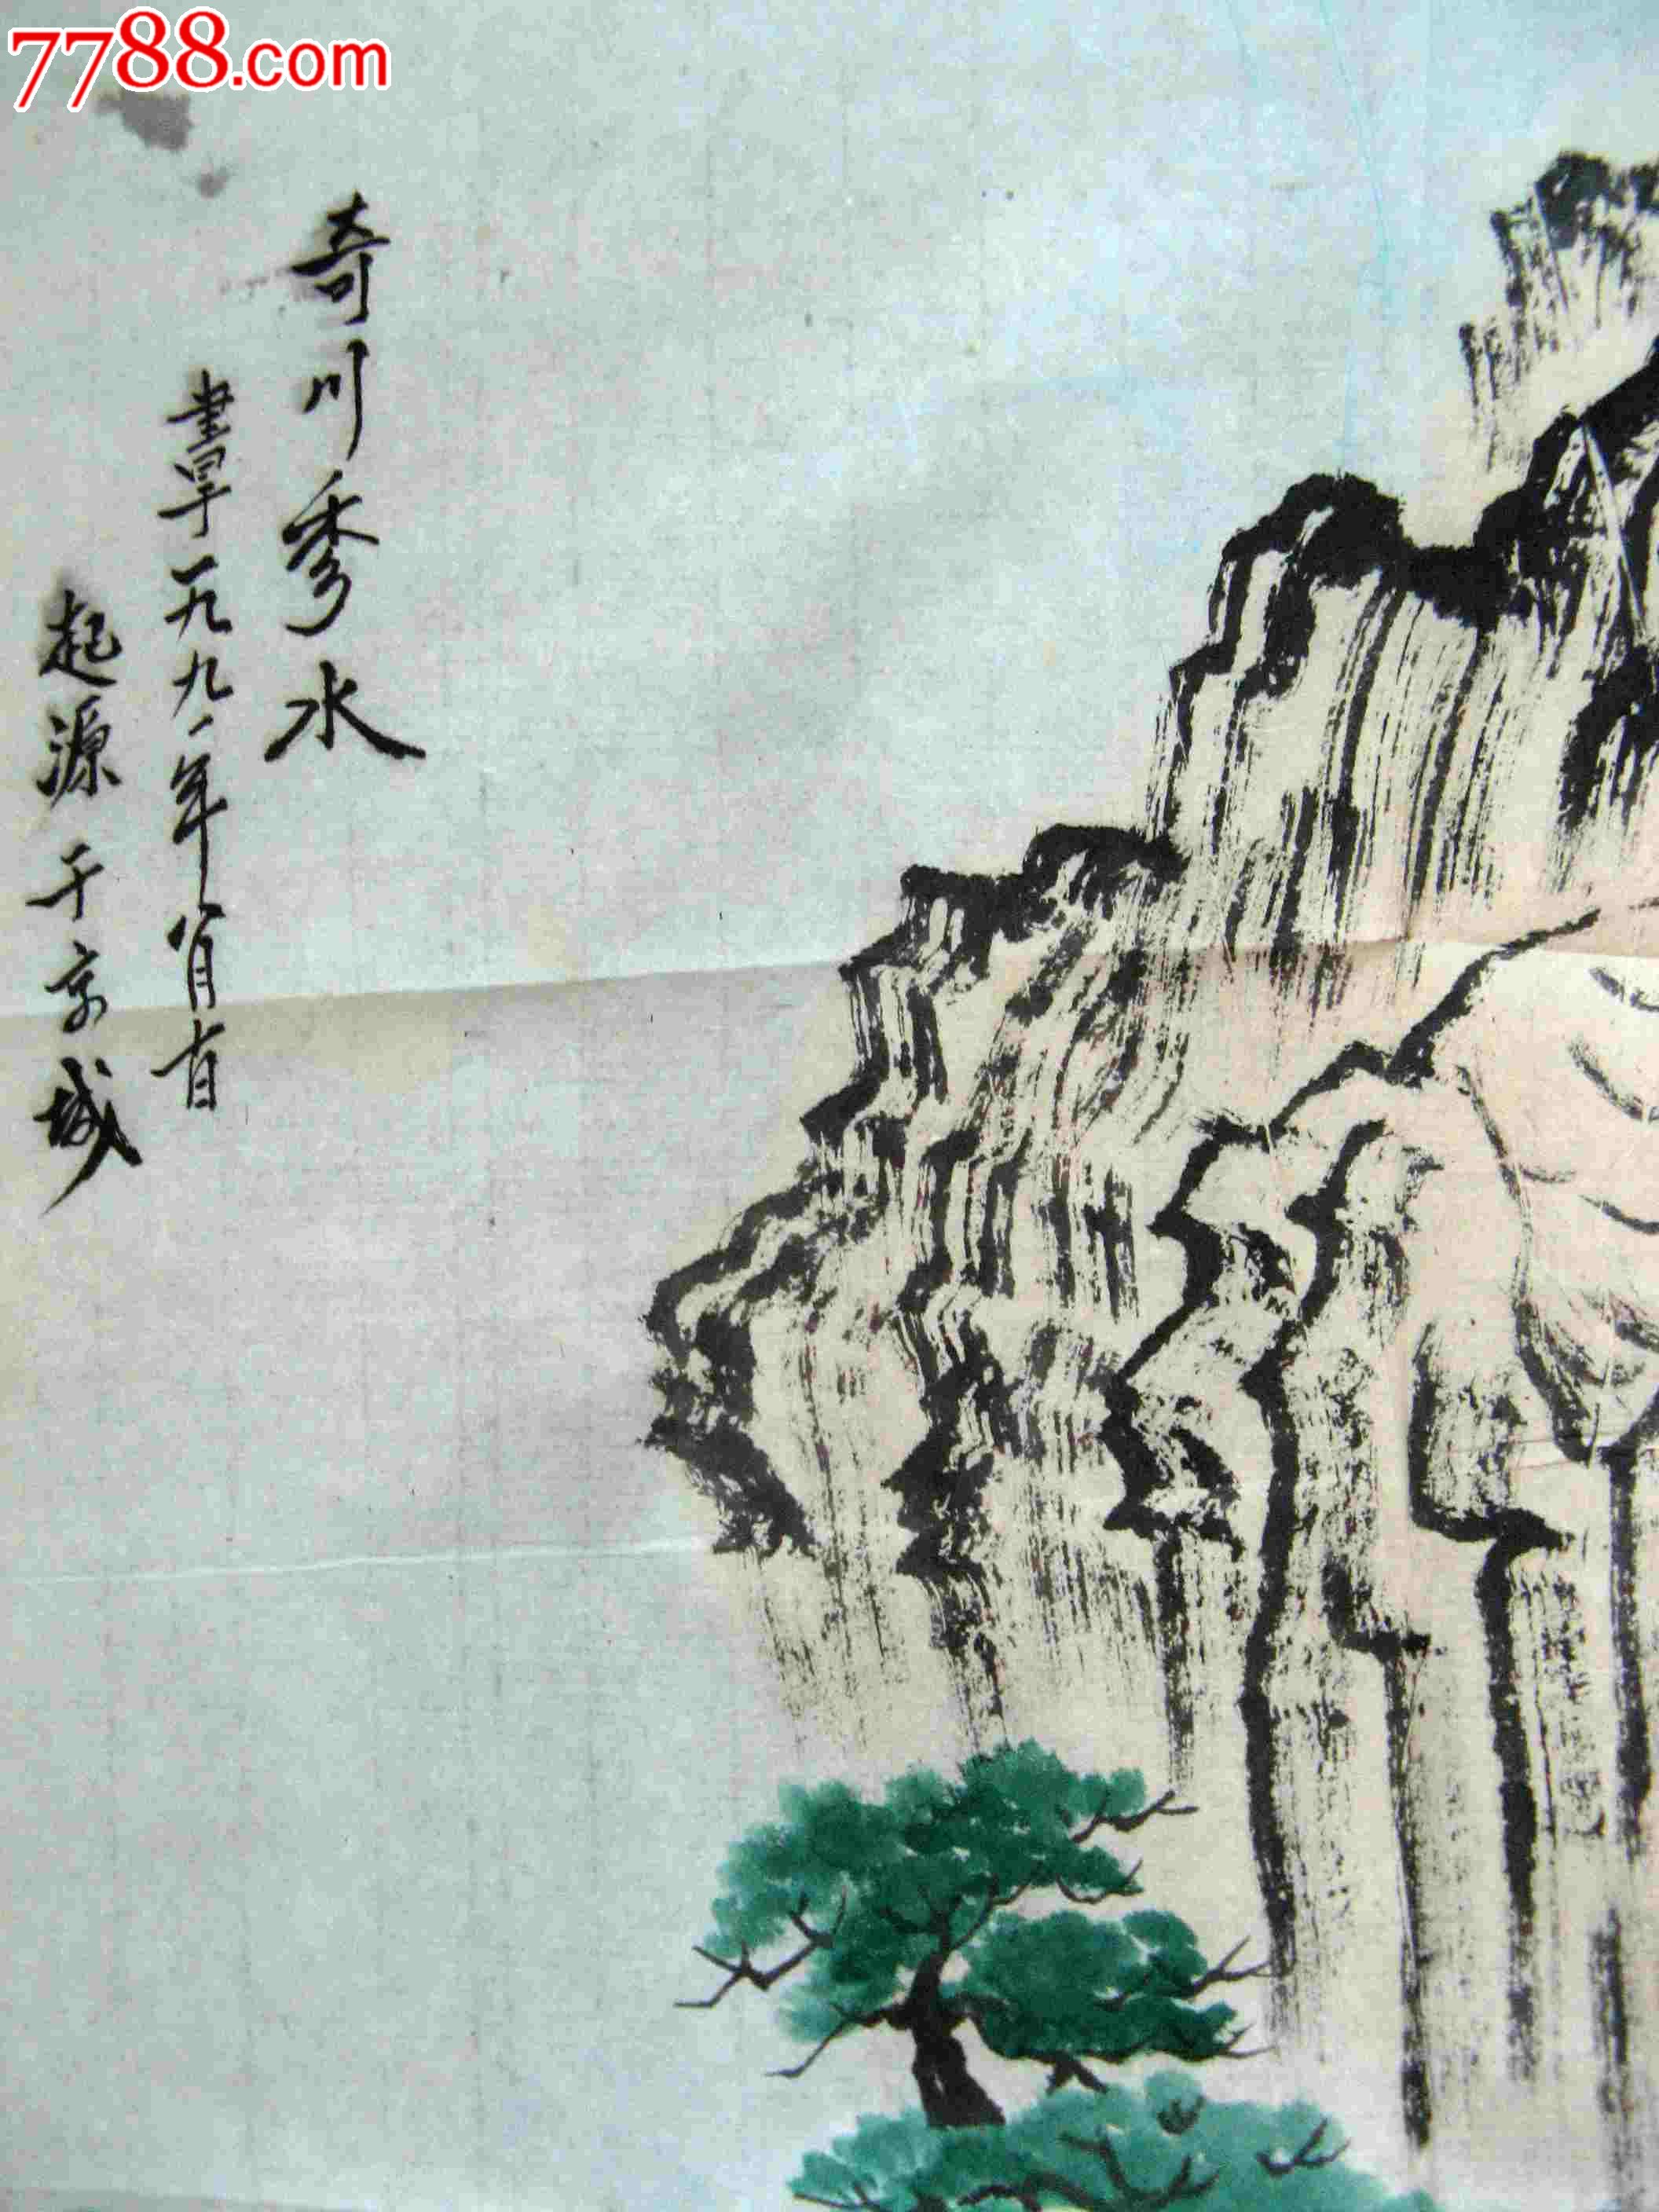 7788.com
奇川秀水
畫於一九九一年八月有日
起源于京城